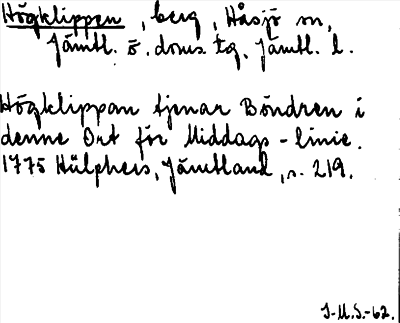 Högklippen, berg, Håsjö sn,
Jämtl. ö. doms. tg, Jämtl. l.
Högklippan tjenar Böndren i
denne Ort för Middags-linie.
1775 Hülphers, Jämtland, s. 219.
I-M.S.-62.